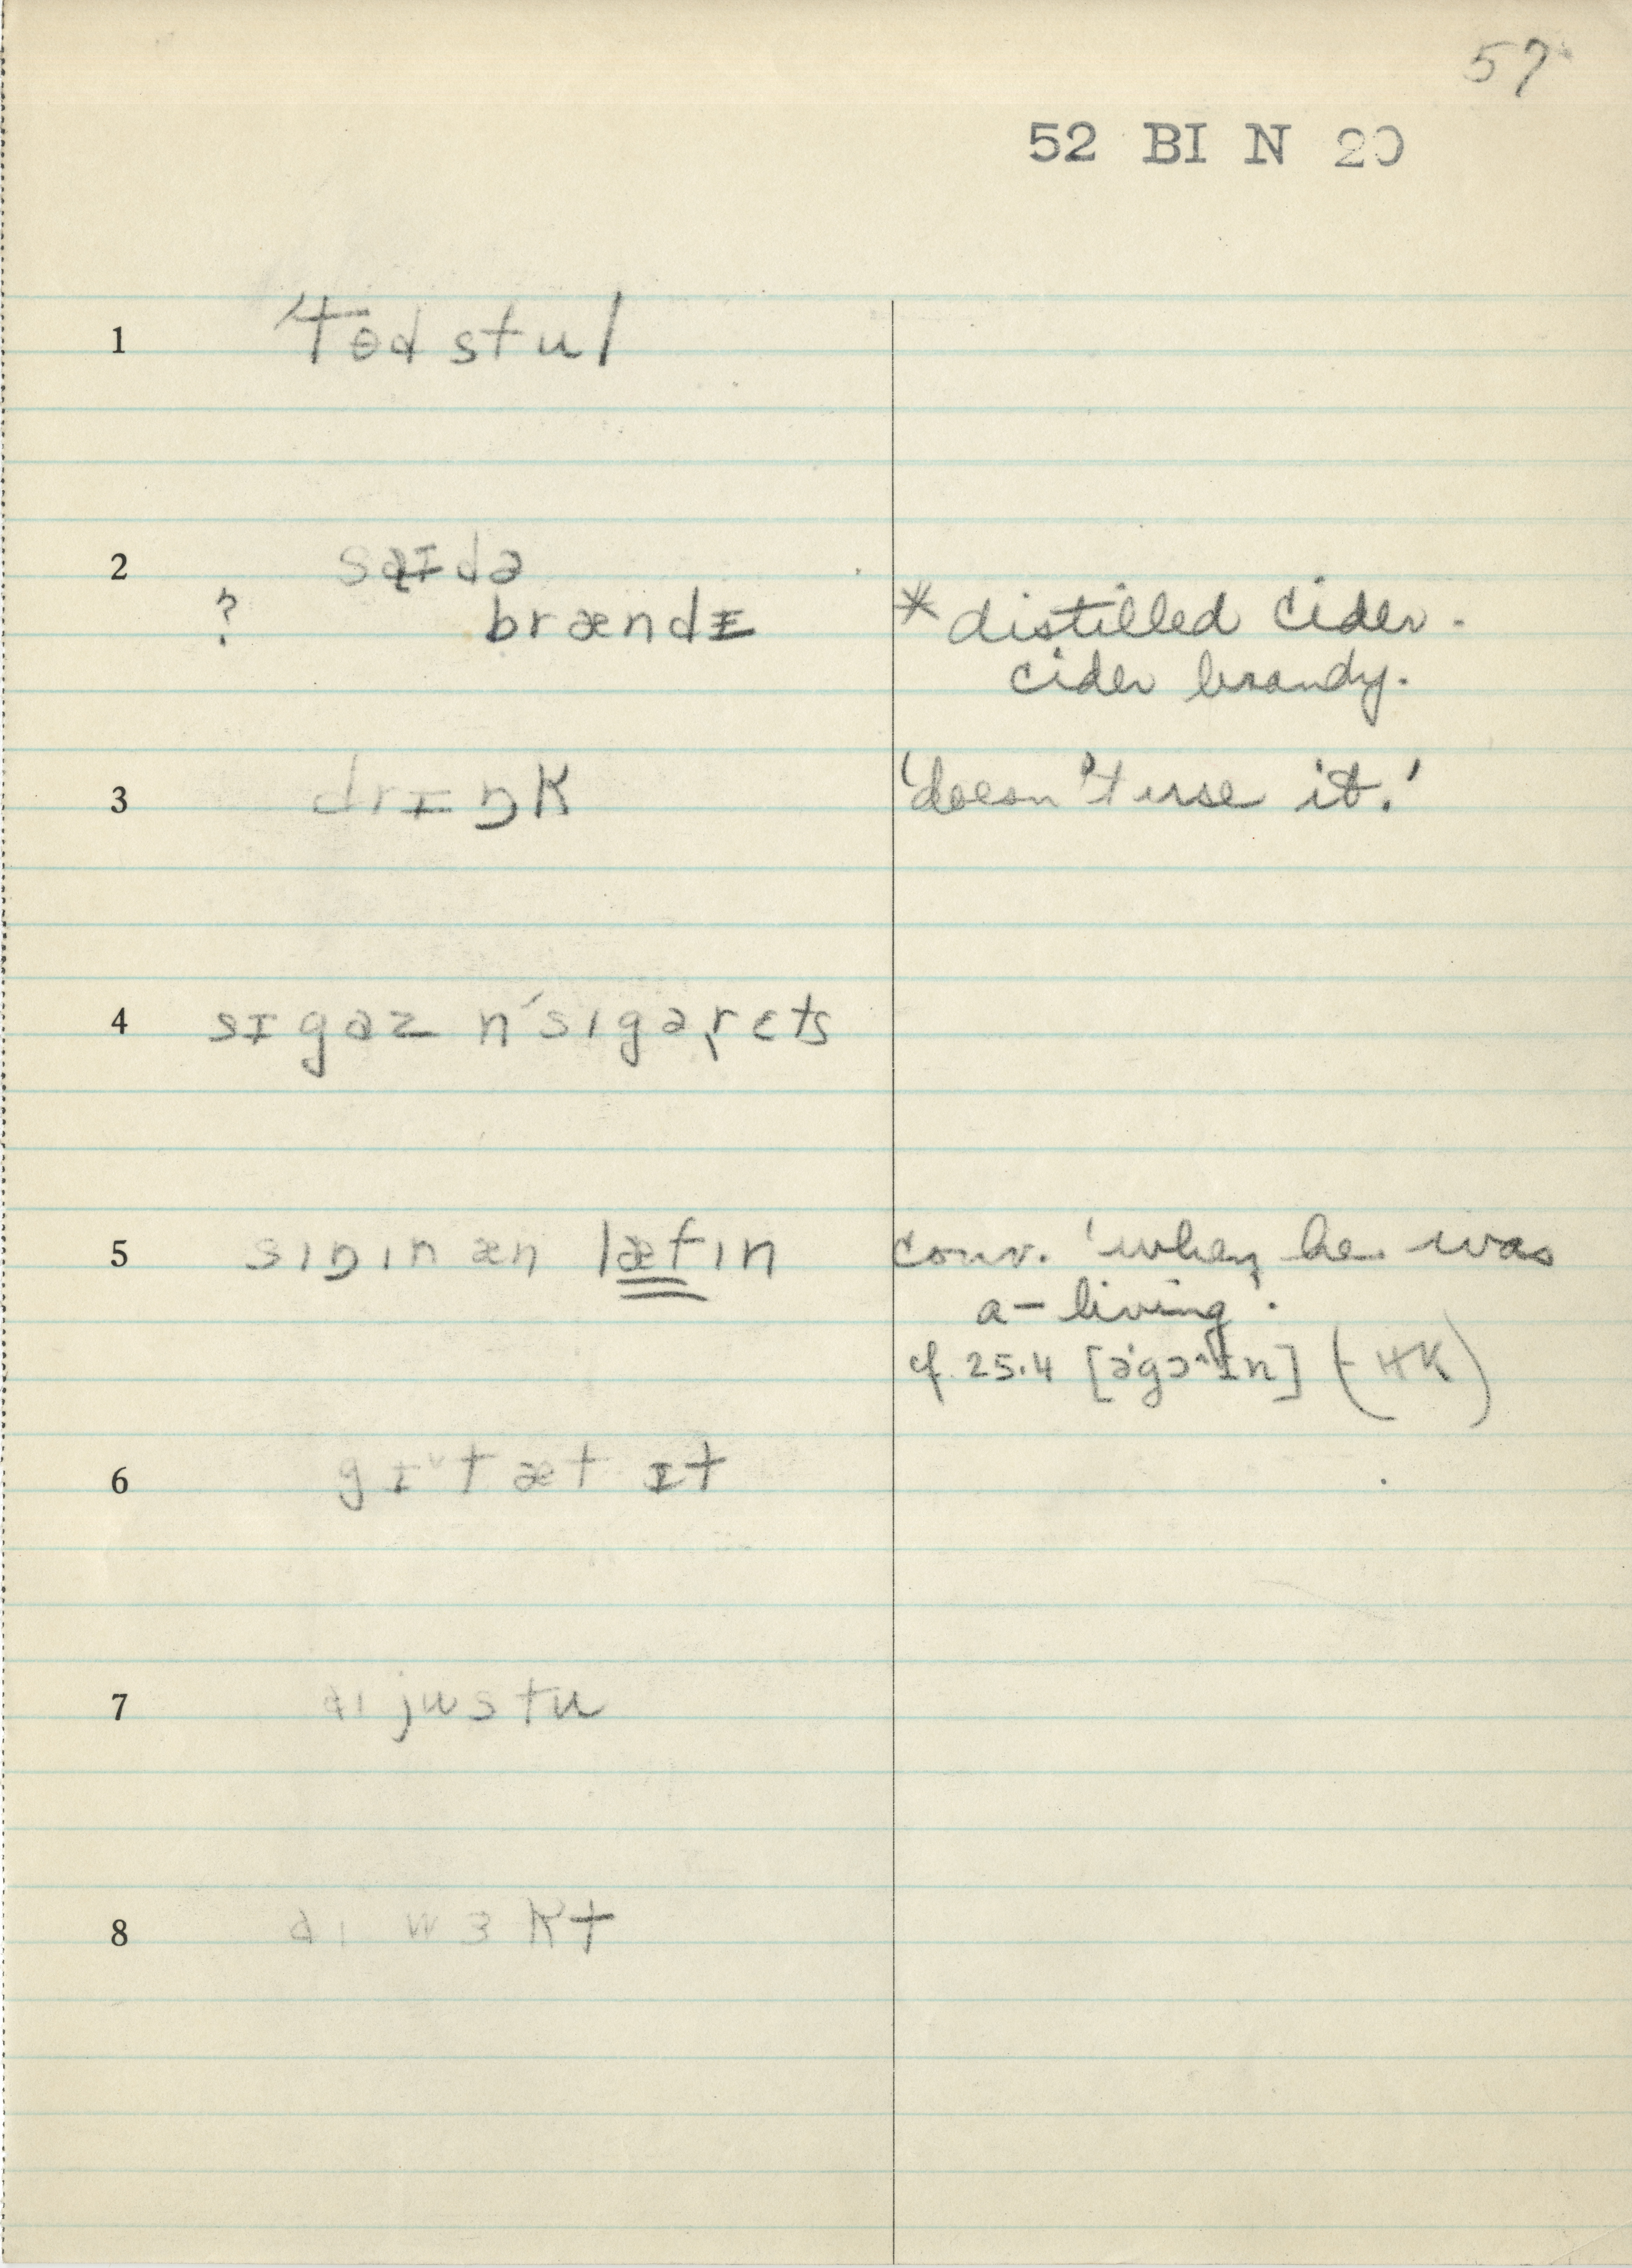 57
52 BI N 20
1 ˈtɵd stul
2 saɪdə
? brændɪ
*distilled cider.
cider brandy.
3 drɪŋk 'doesn't use it.'
4 sɪgaz n ˈsɪgəˌrɛts
5 sɪŋɪn æn læfɪn conv. 'when he was
a-living'.
cf. 25.4 [əˈgɔ˄ɪn] (HK)
6 gɪ˅t æt ɪt
7 aɪ justu
8 aɪ wɜkt